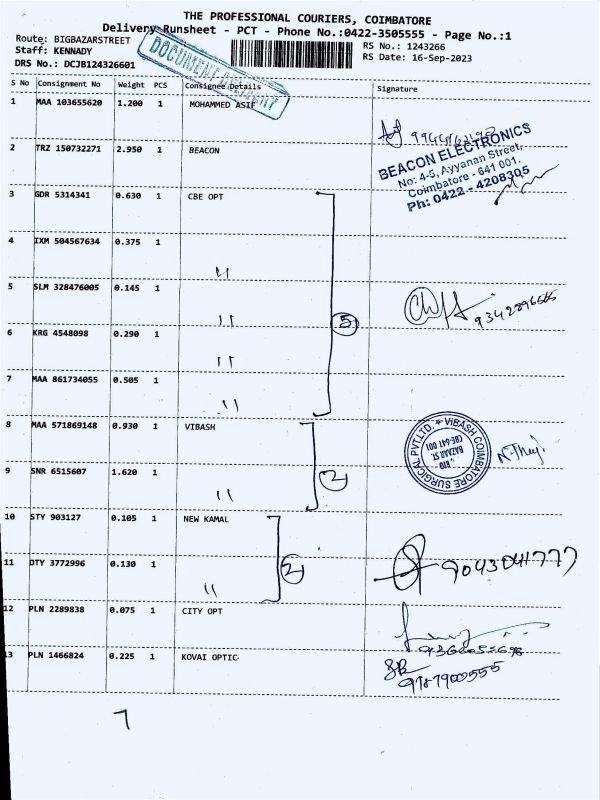 THE PROFESSIONAL COURIERS, COIMBATORE
Delivery Runsheet - PCT - Phone No.:0422-3505555 - Page No.:1
Route: BIGBAZARSTREET
Staff: KENNADY
DRS No.: DCJB124326601
DOCUMENT DELIVERY
RS No.: 1243266
RS Date: 16-Sep-2023
S No Consignment No Weight PCS Consignee Details Signature
1 MAA 103655620 1.200 1 MOHAMMED ASIF
2 TRZ 150732271 2.950 1 BEACON
BEACON ELECTRONICS
No: 4-5, Ayyanan Street,
Coimbatore - 641 001.
Ph: 0422 - 4208305
3 GDR 5314341 0.630 1 CBE OPT
4 IXM 504567634 0.375 1 "
5 SLM 328476005 0.145 1 "
5
6 KRG 4548098 0.290 1 "
7 MAA 861734055 0.505 1 "
8 MAA 571869148 0.930 1 VIBASH
VIBASH COIMBATORE SURGICAL PVT.LTD.
BIG
BAZAAR ST.
CBE-641 001
9 SNR 6515607 1.620 1 "
2
10 STY 903127 0.105 1 NEW KAMAL
11 OTY 3772996 0.130 1 "
2
9043041777
12 PLN 2289838 0.075 1 CITY OPT
13 PLN 1466824 0.225 1 KOVAI OPTIC
9787900555
7